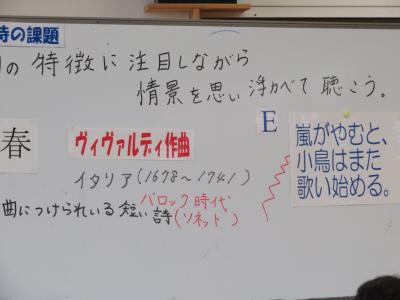 時の課題
の特徴に注目しながら
情景を思い浮かべて聴こう。
春
ヴィヴァルディ作曲
イタリア(1678〜1741)
バロック時代
曲につけられいる短い詩(ソネット)
E
嵐がやむと、
小鳥はまた
歌い始める。